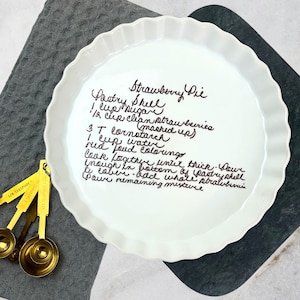 Strawberry Pie
Pastry Shell
1 cup sugar
1/2 cup clean strawberries
(mashed up)
3 T cornstarch
1 cup water
red food coloring
Cook together until thick. Pour
enough in bottom of pastry shell
to cover. Add whole strawberries
Pour remaining mixture